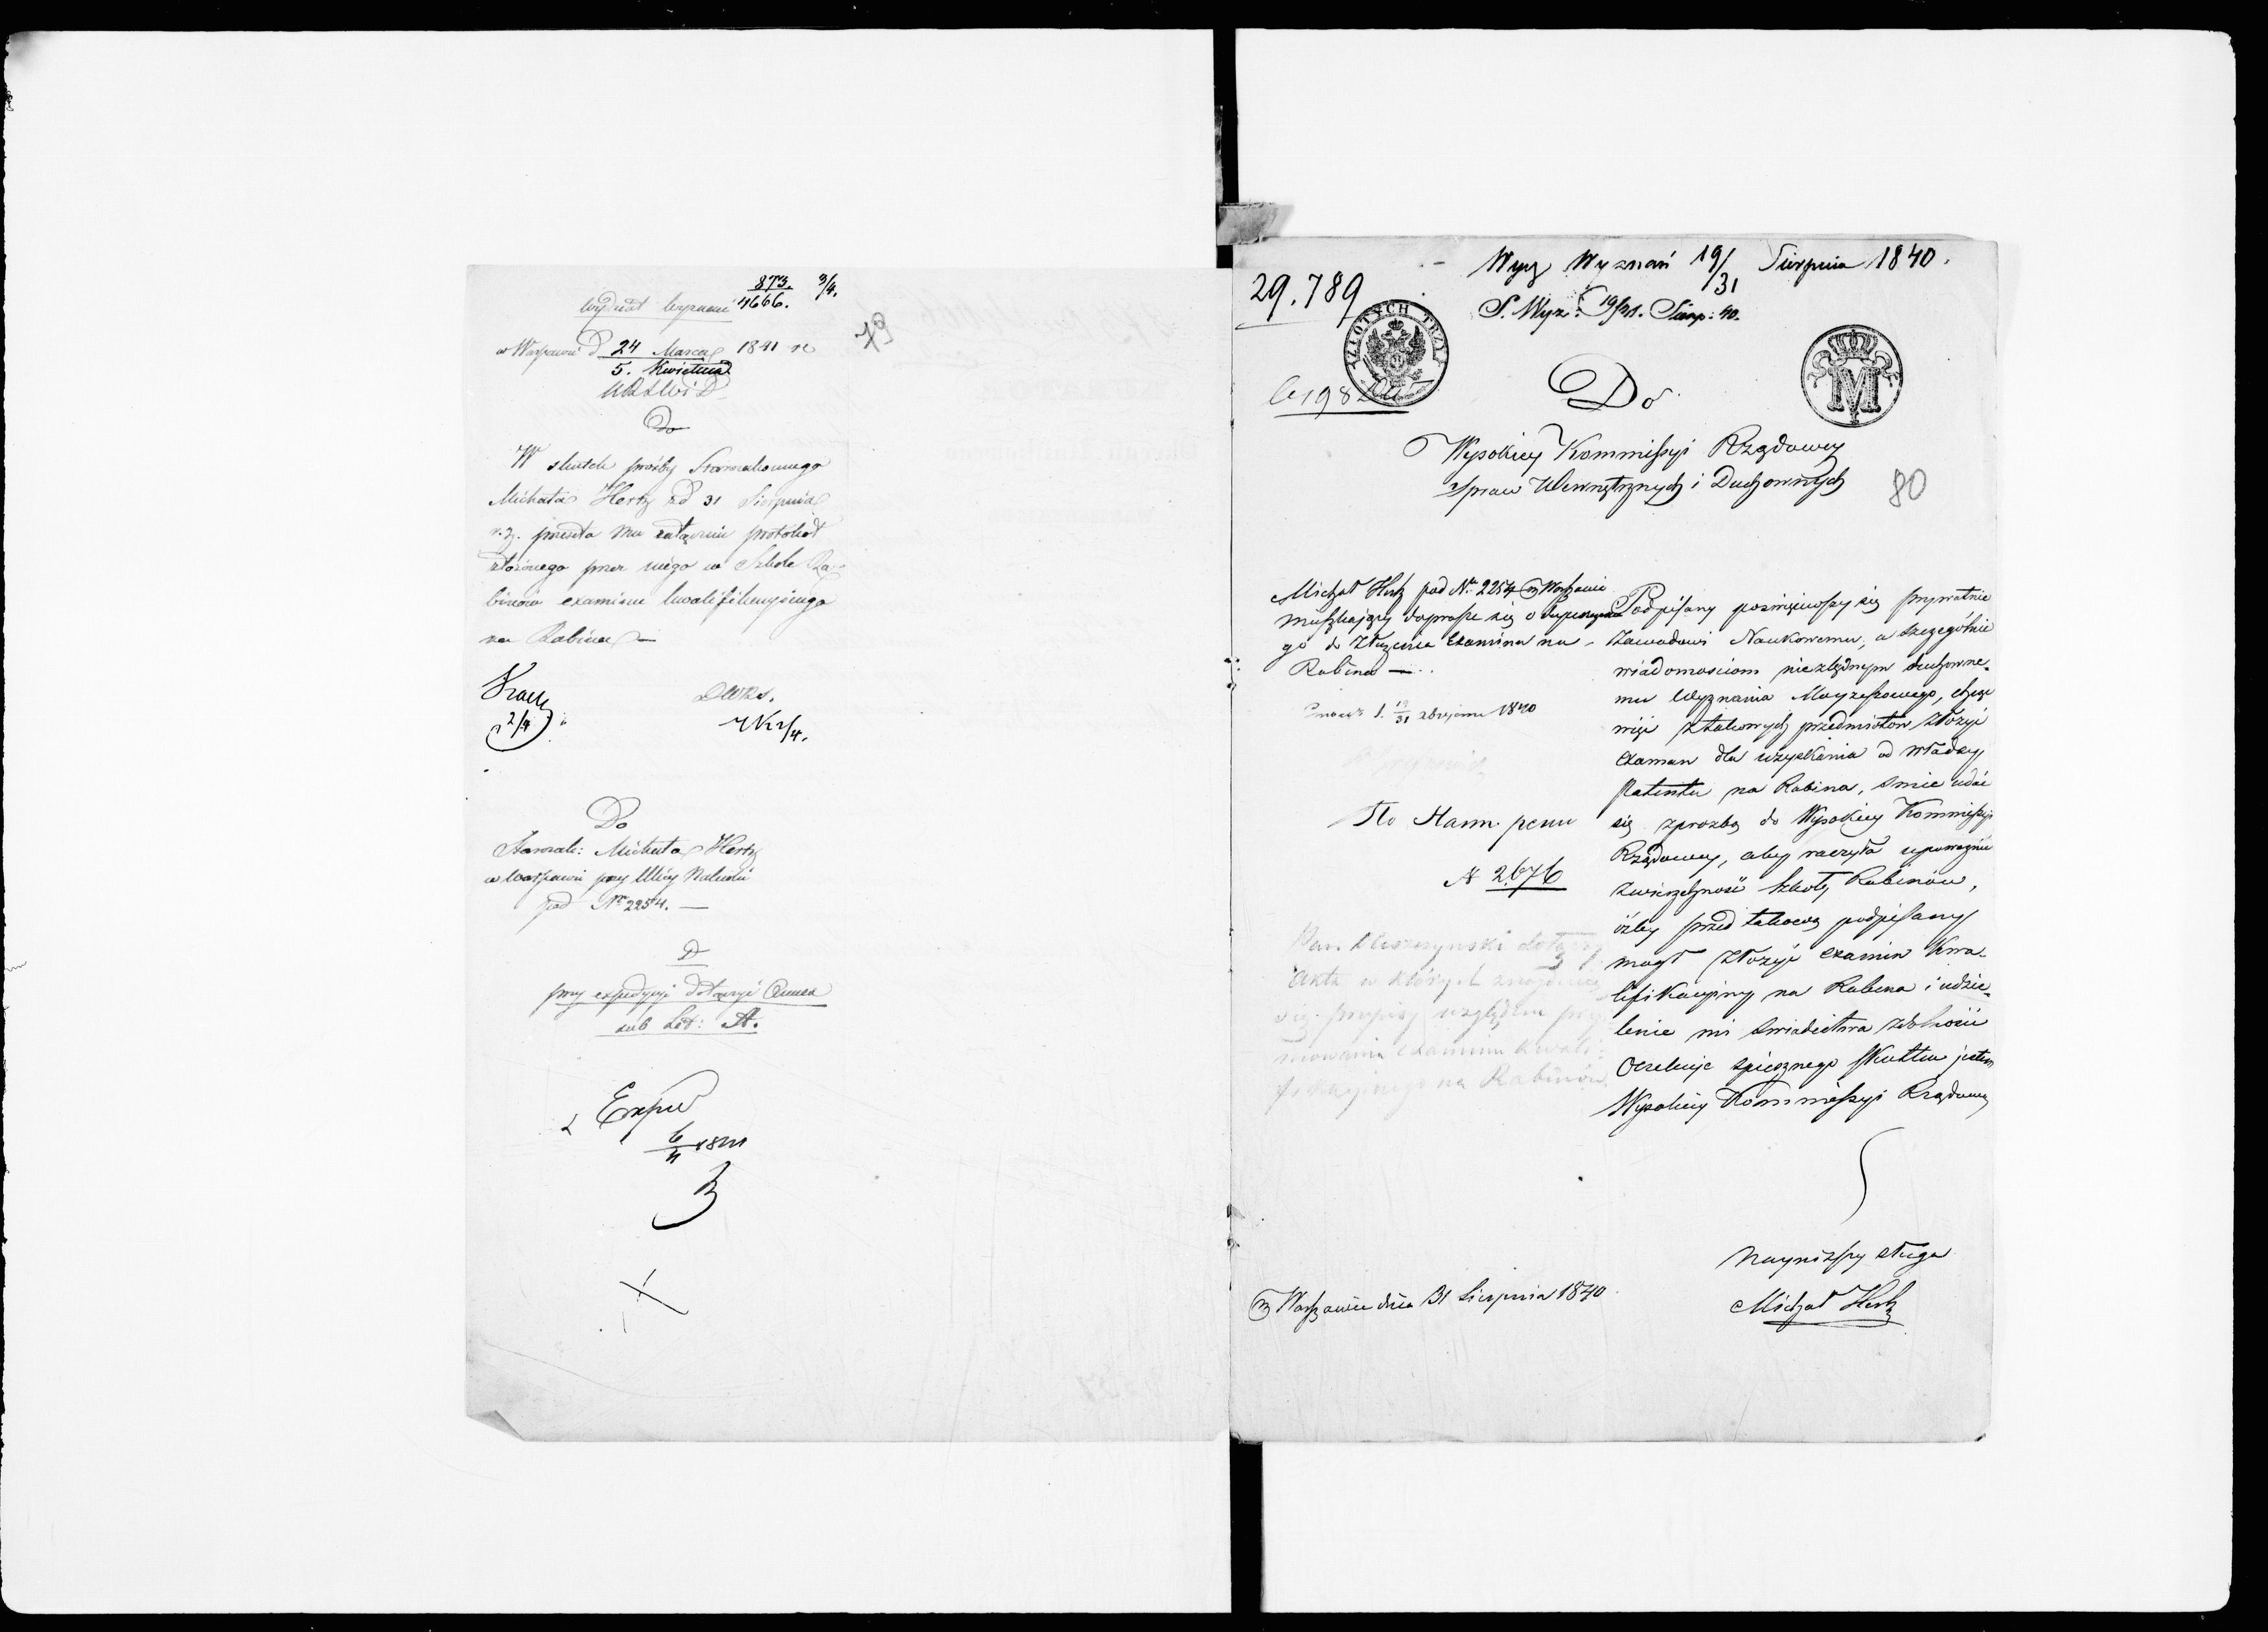 873. 3/4.
Wydział Wyznań 4666.
79
w Warszawie d 24 Marca 1841 r.
5. Kwietnia
Do
W skutek prośby Starozakonnego
Michała Hertz z d 31 Sierpnia
r. z. przesyła mu załącznie protokół
złożonego przez niego w Szkole Ra-
binów examinu kwalifikacyjnego
na Rabina —
2/4
Do
Starozak: Michała Hertz
w Warszawie przy Ulicy Nalewki
pod Nr 2254. —
D
przy expedycyi dołączyć
sub Lit: A.
Exped
6/4 1841
Wyz Wyznań 19/31 Sierpnia 1840.
29.789
S. Wyz. 19/31. Sierp: 40.
ZŁOTYCH TRZY
M
Do
Wysokiey Kommissyi Rządowey
Spraw Wewnętrznych i Duchownych
80
Michał Hertz pod Nr. 2254 w Warszawie
mieszkający doprasza się o
go do złożenia Examinu na
Rabina —
19/31 1840
No 2676
akta w których znajdują
się przepisy względem przy-
mowania examinu kwali-
fikacyjnego na Rabinów
Podpisany poświęciwszy się prywatnie
Zawodowi Naukowemu, a szczególnie
wiadomościom niezbędnym duchowne-
mu Wyznania Moyżeszowego, chcąc
więc z takowych przedmiotów złożyć
Examen dla uzyskania od władzy
Patentu na Rabina, śmie udać
się z prozbą do Wysokiey Kommissyi
Rządowey, aby raczyła upoważnić
Zwierzchność Szkoły Rabinów,
iżby przed takową podpisany
mógł złożyć examin Kwa-
lifikacyiny na Rabina i udzie-
lenie mi świadectwa zdolności
Oczekuję spiesznego skutku jestem
Wysokiey Kommissyi Rządowey
Nayniższy sługa
Michał Hertz
w Warszawie dnia 31 Sierpnia 1840